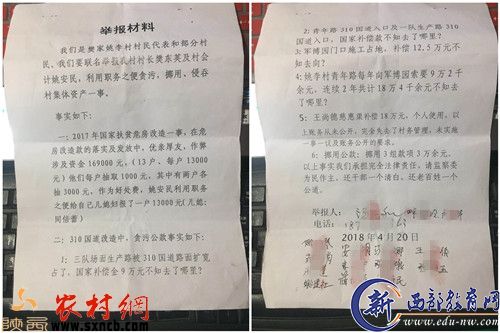 举报材料
我们是樊家姚李村村民代表和部分村
民，我们要联名举报我村村长樊东英及村会
计姚安民，利用职务之便贪污、挪用、侵吞
村集体资产一事。
事实如下：
一：2017年国家扶贫危房改造一事，在危
房改造款的落实及发放中，优亲厚友，作弊
涉及资金169000元，（13户、每户13000
元）他们每户抽取1000元，其中有两户各
抽3000元，作为好处费，姚安民利用职务
之便给自己儿媳却报了一户13000元（儿媳：
同倍蕾）
二：310国道改造中，贪污公款事实如下：
1：三队场面生产路被310国道路面扩宽
占了，国家补偿金9万元不知去了哪里？
2：青年路310国道入口及一队生产路310
国道入口，国家补偿款不知去了哪里？
3：军博园门口施工占地，补偿12.5万元不
知去向？
4：姚李村青年路每年向军博园索要9万2千
余元，连续2年共计18万4千余元不知去
了哪里？
5：王尚德慈惠渠补偿18万元，个人使用，以
上账务从未公开，完全失去了村务管理，未实施
一事一议及账务公开的要求。
6：挪用公款：挪用3组款项3万余元，
以上事实我们承担完全法律责任。请监察委
为民作主，还干部一个清白。还老百姓一个
公道。
举报人：
电话：187
2018年4月20
陕西
农村網
www.sxncb.com
新西部教育网
www.edu-nw.com